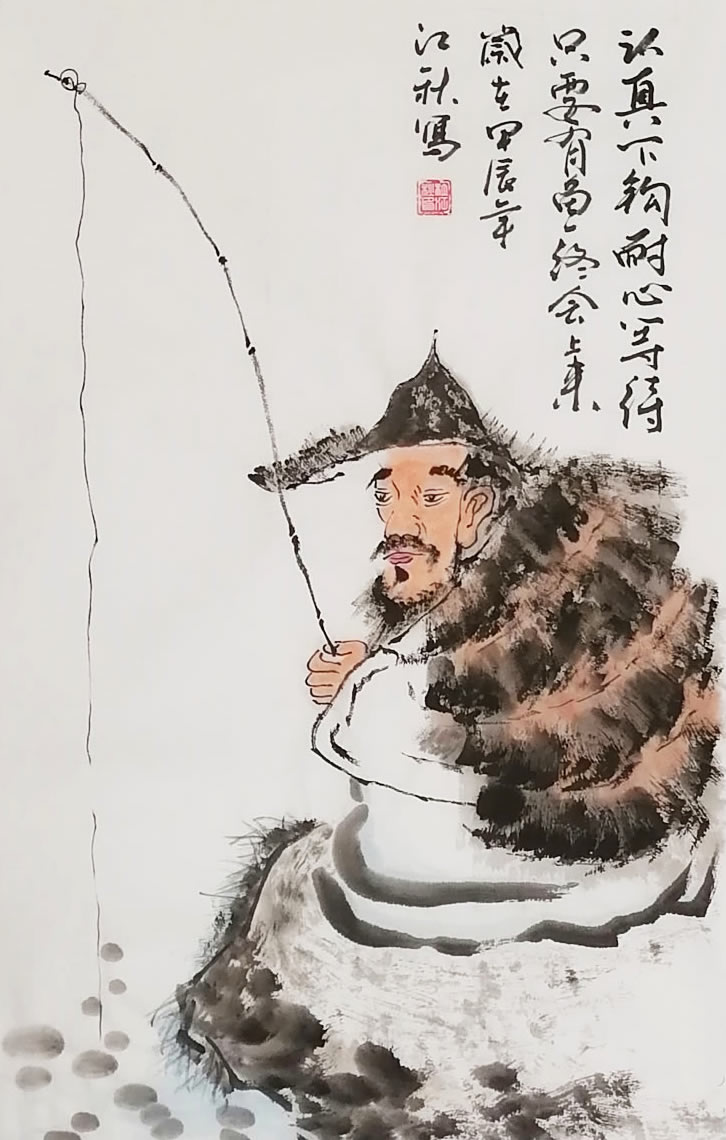 认真下钩耐心等待
只要有鱼终会上来
歲在甲辰年
江秋寫